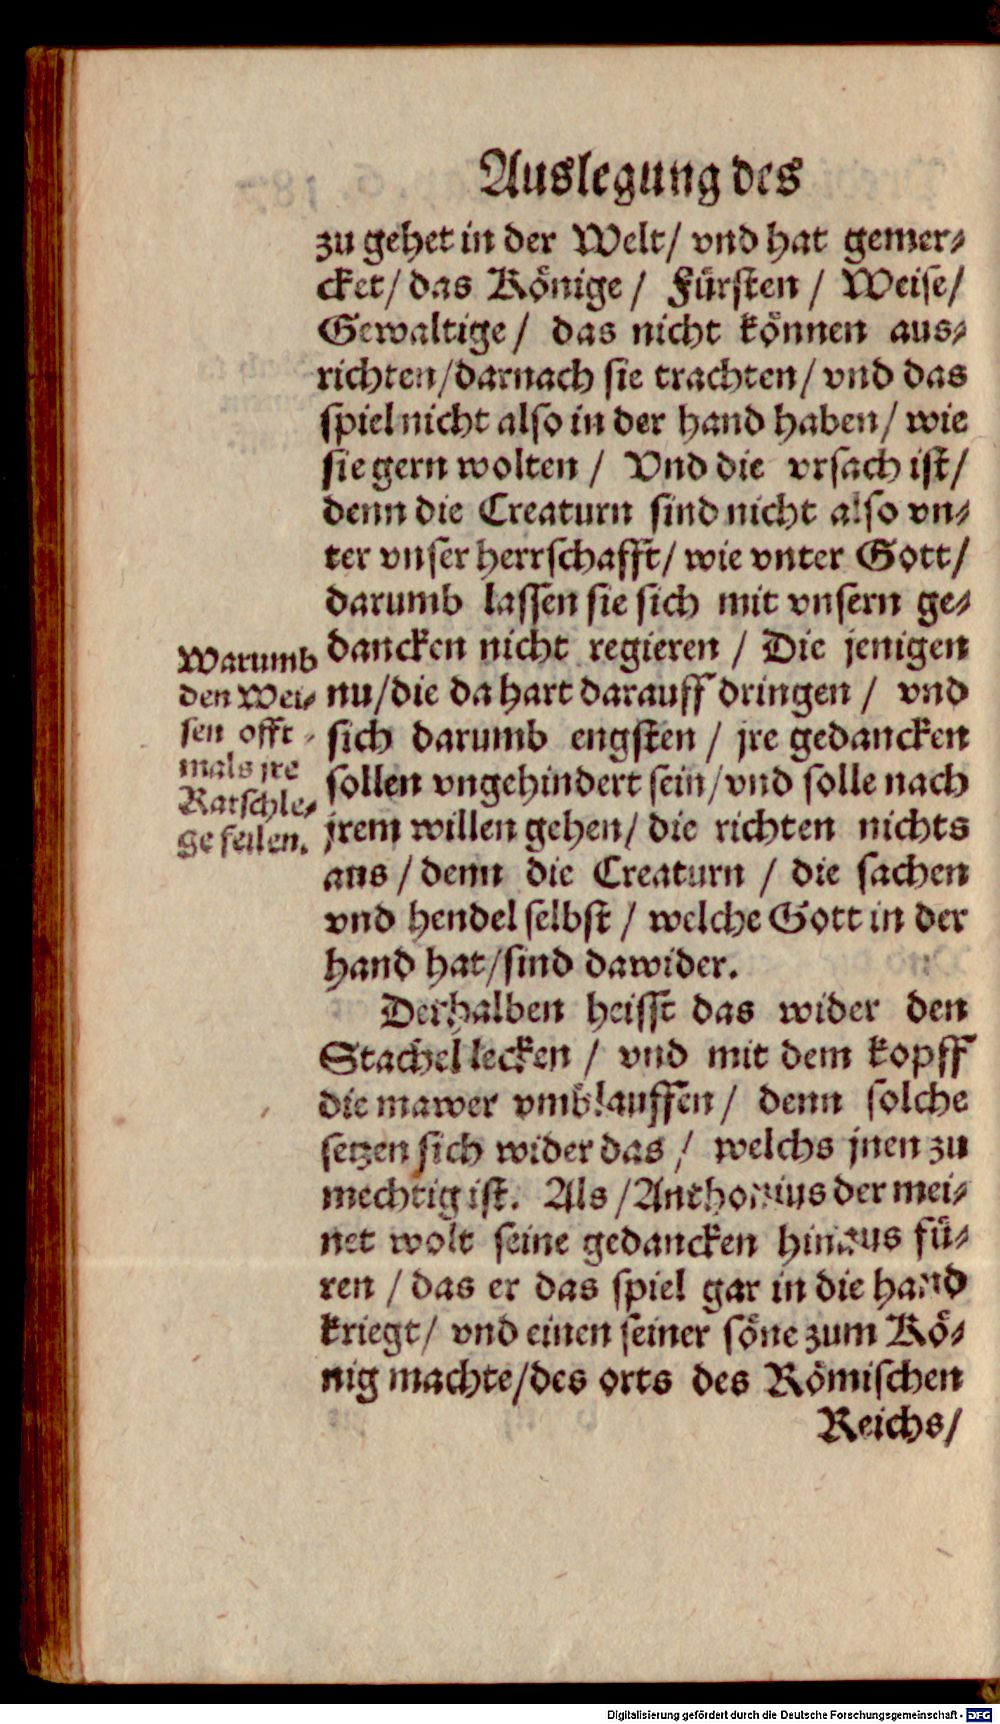 Auslegung des
zu gehet in der Welt/ vnd hat gemer-
cket/ das Könige / Fürsten / Weise/
Gewaltige / das nicht können aus-
richten/darnach sie trachten/ vnd das
spiel nicht also in der hand haben/ wie
sie gern wolten / Vnd die vrsach ist/
denn die Creaturn sind nicht also vn-
ter vnser herrschafft/ wie vnter Gott/
darumb lassen sie sich mit vnsern ge-
dancken nicht regieren / Die jenigen
nu/die da hart darauff dringen / vnd
sich darumb engsten / jre gedancken
sollen vngehindert sein/vnd solle nach
jrem willen gehen/ die richten nichts
aus / denn die Creaturn / die sachen
vnd hendel selbst / welche Gott in der
hand hat/sind dawider.
Warumb
den Wei-
sen offt-
mals jre
Ratschle-
ge feilen.
Derhalben heisst das wider den
Stachel lecken / vnd mit dem kopff
die mawer vmblauffen / denn solche
setzen sich wider das / welchs jnen zu
mechtig ist. Als /Anthonius der mei-
net wolt seine gedancken hinaus fü-
ren / das er das spiel gar in die hand
kriegt/ vnd einen seiner söne zum Kö-
nig machte/des orts des Römischen
Reichs/
Digitalisierung gefördert durch die Deutsche Forschungsgemeinschaft - DFG